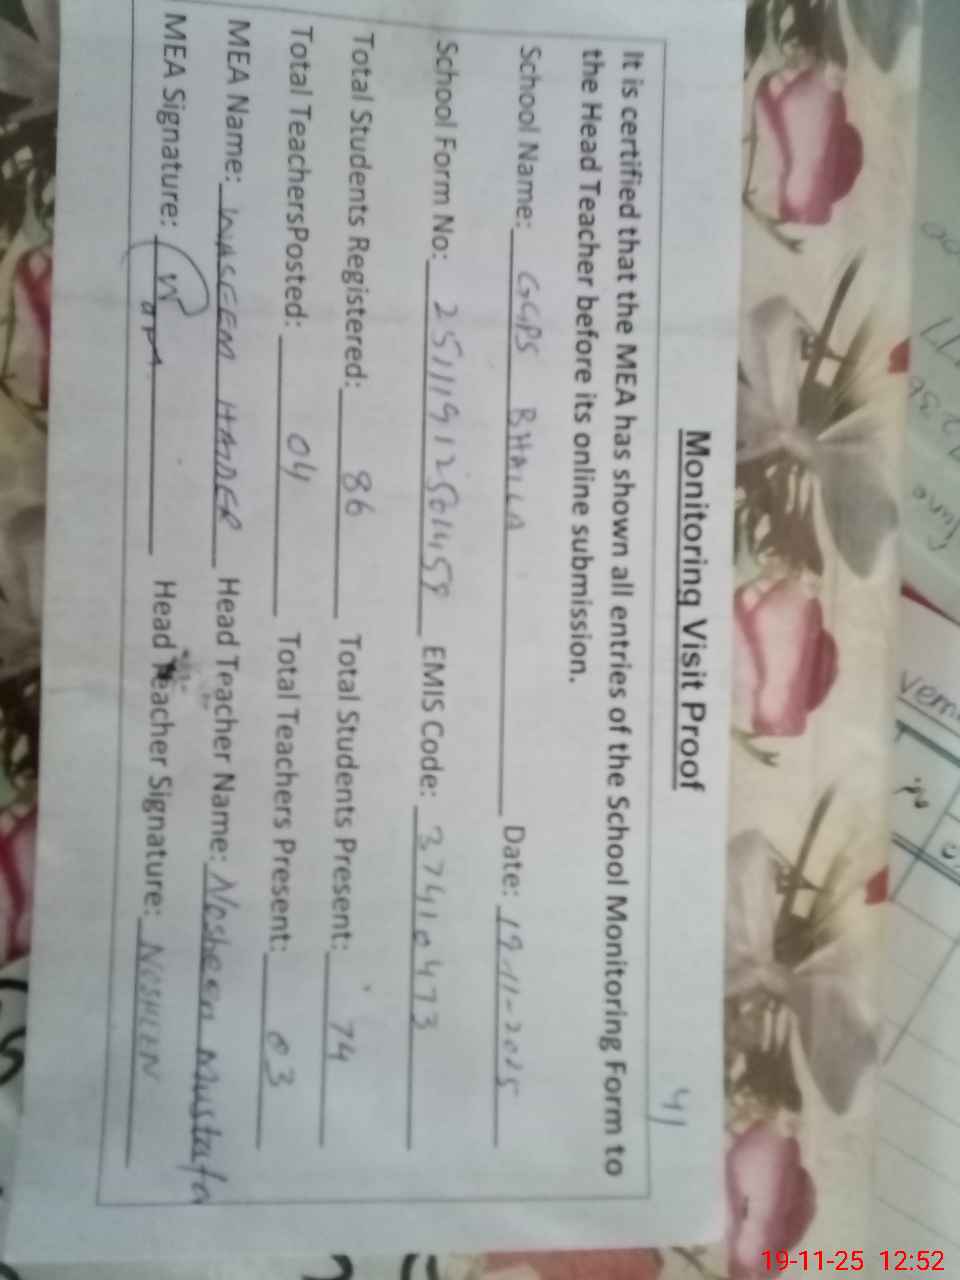 41
Monitoring Visit Proof
It is certified that the MEA has shown all entries of the School Monitoring Form to
the Head Teacher before its online submission.
School Name: GGPS BHALLA Date: 19-11-2025
School Form No: EMIS Code: 37410473
Total Students Registered: 86 Total Students Present: 74
Total TeachersPosted: 04 Total Teachers Present: 03
MEA Name: WASEEM HAIDER Head Teacher Name: Nosheen Mustafa
MEA Signature: Head Teacher Signature: NOSHEEN
19-11-25 12:52